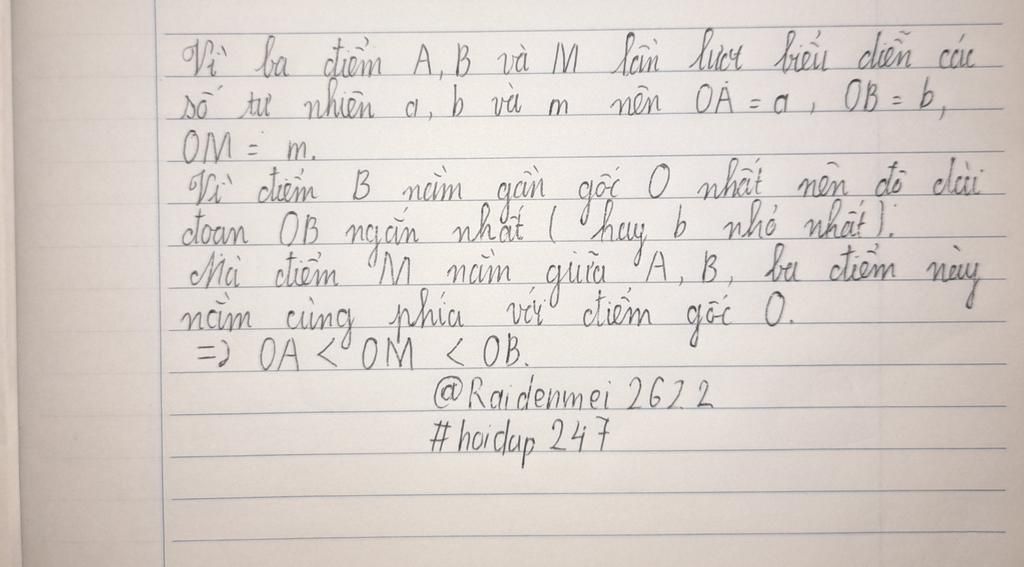 Vì ba điểm A, B và M lần lượt biểu diễn các
số tự nhiên a, b và m nên OA = a, OB = b,
OM = m.
Vì điểm B nằm gần gốc O nhất nên độ dài
đoạn OB ngắn nhất ( hay b nhỏ nhất ).
Mà điểm M nằm giữa A, B, ba điểm này
nằm cùng phía với điểm gốc O.
=> OA < OM < OB.
@Raidenmei2622
#hoidap247